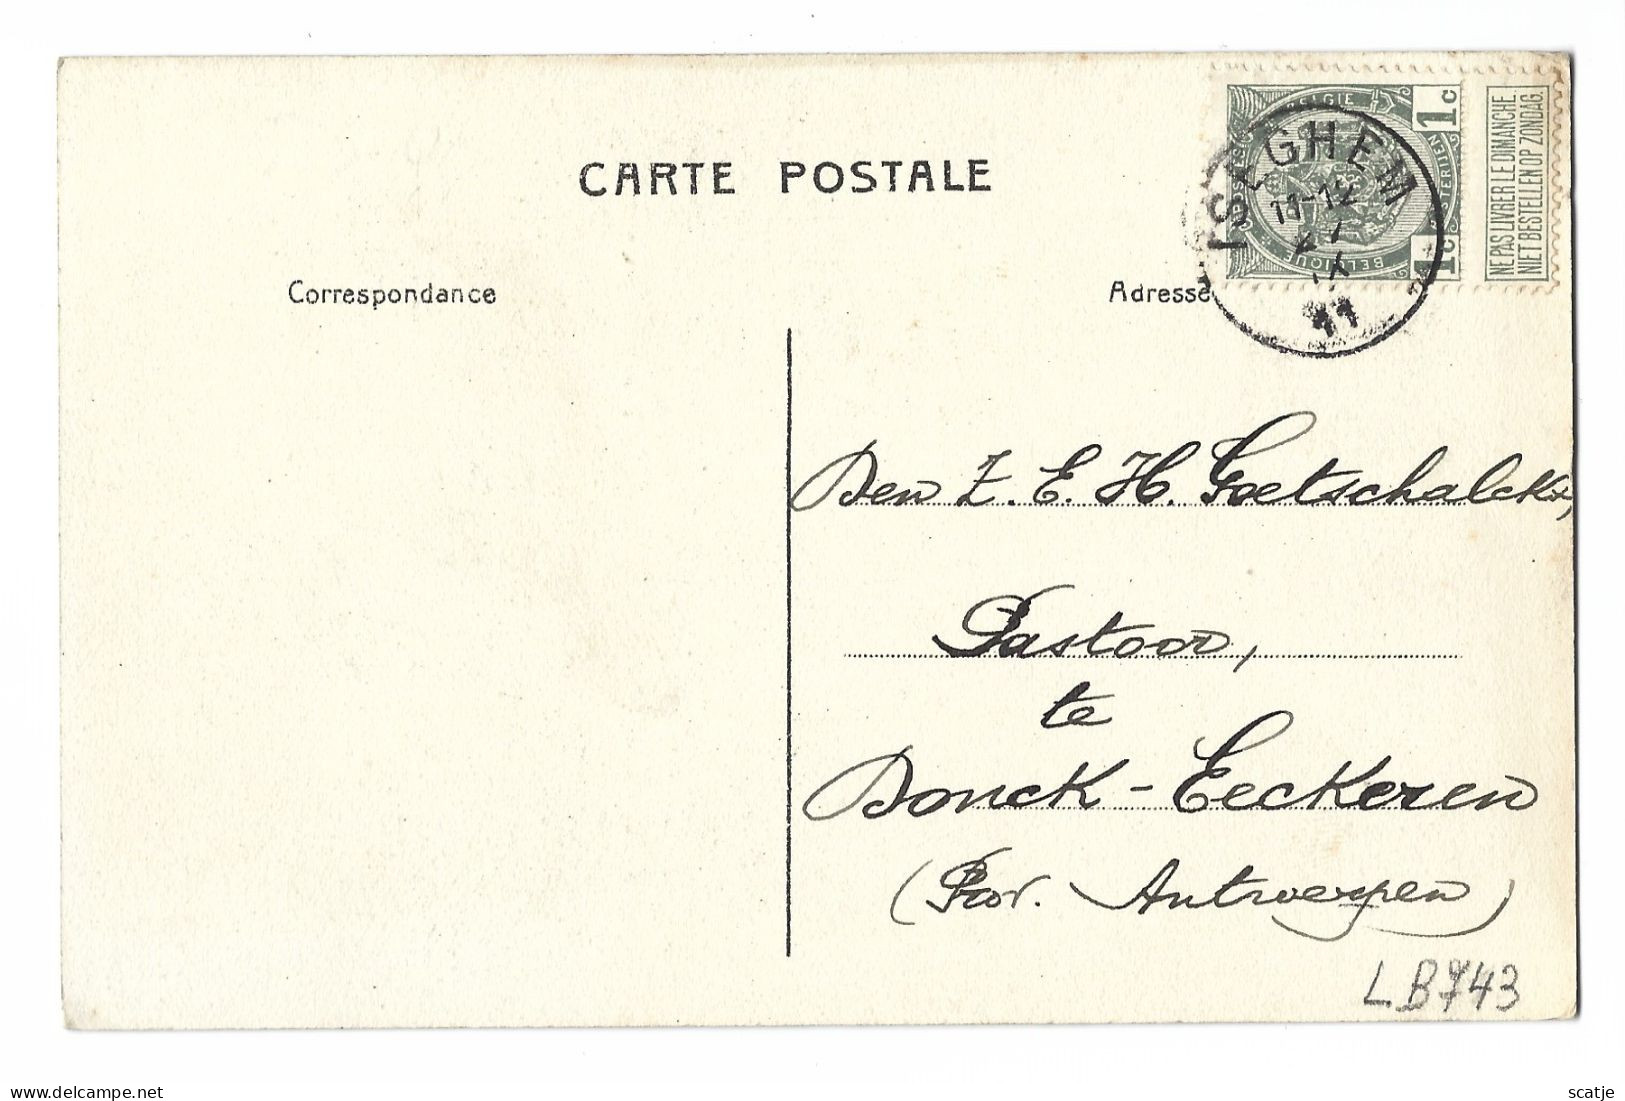 CARTE POSTALE
Correspondance
Adresse
1c
1c
BELGIQUE
NE PAS LIVRER LE DIMANCHE.
NIET BESTELLEN OP ZONDAG.
ISEGHEM
11-12
IX
11
Den Z. E. H. Goetschalckx,
Pastoor,
te
Donck-Eeckeren
(Prov. Antwerpen)
LB743
scatje